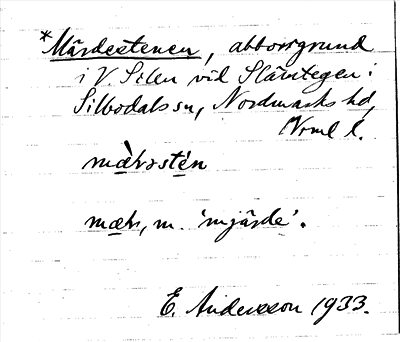 *Märdestenen, abborrgrund
i V. Silen vid Slävitegen i
Silbodals sn, Nordmarks hd,
Vrml l.
mæ̀rəstén
mær, m. 'mjärde'.
E. Andersson 1933.